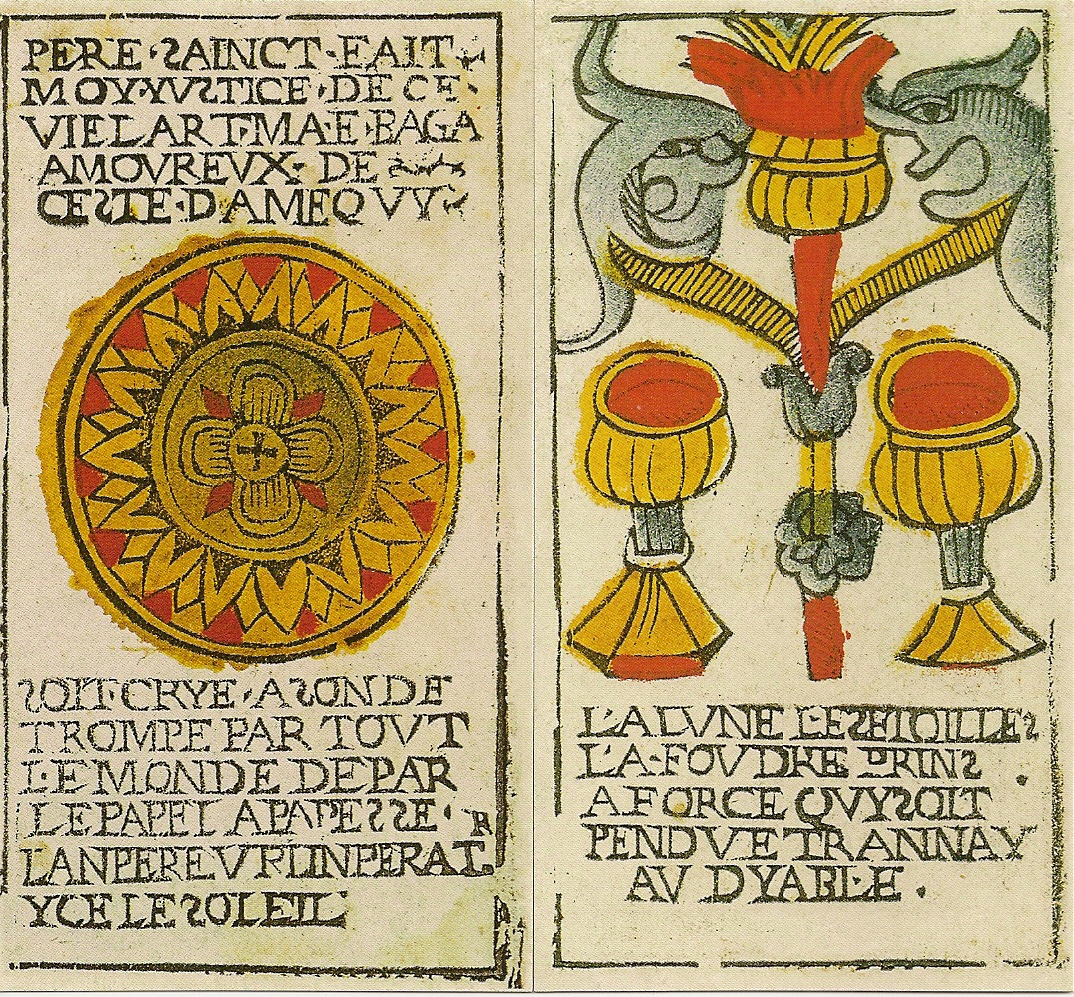 PERE·SAINCT·FAIT
MOY·YUSTICE·DE CE·
VIELART·MA·E·BAGA
AMOUREUX·DE
CESTE·DAMEQUY
SOIT·CRYE·ASONDE
TROMPE PAR TOUT
LEMONDE DEPAR
LEPAPEL APAPESSE·
LANPEREURLINPERAT
YCE LE SOLEIL
L'ALUNE LESETOILLES
L'A·FOUDRE PRINS
AFORCE QUYSOIT
PENDUETRANNAY
AU DYABLE.